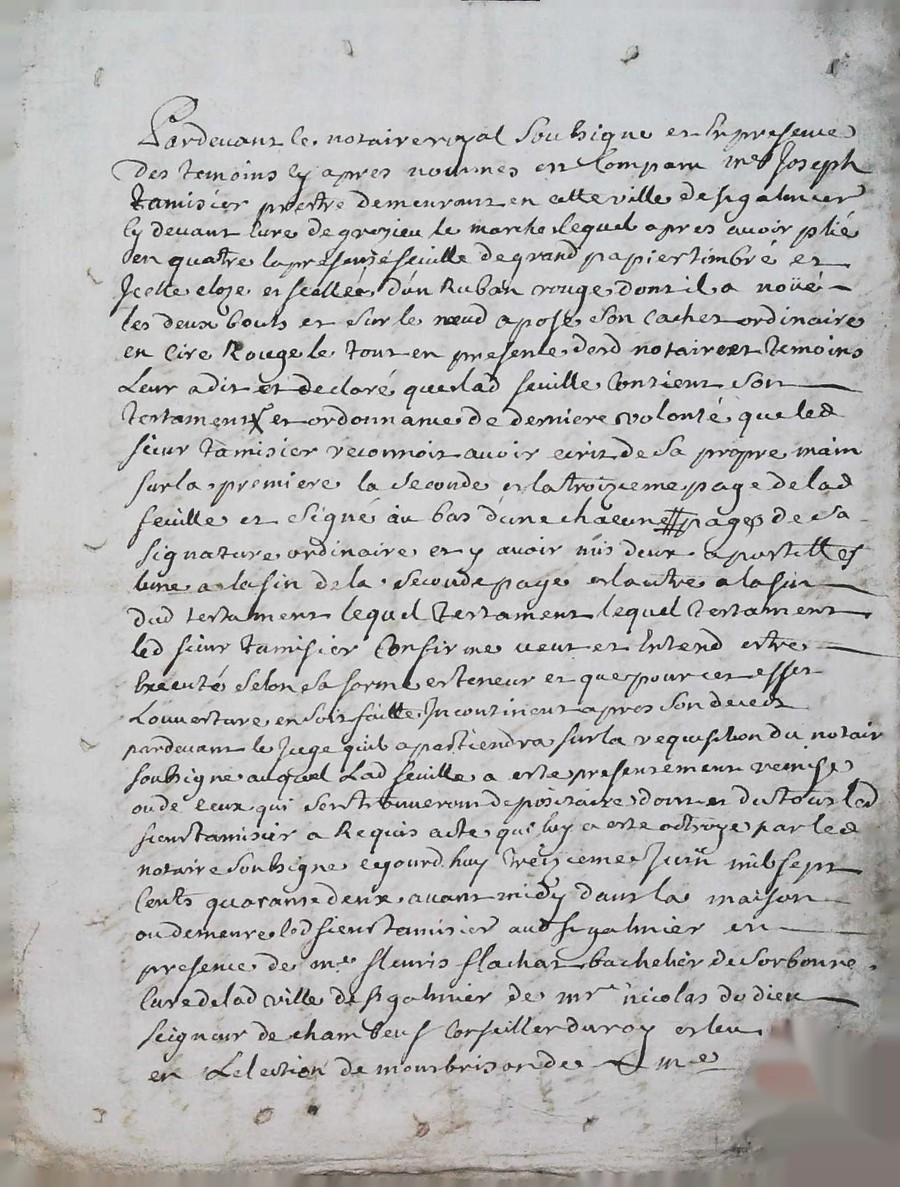 Pardevant le notaire royal soubsigné et en presence
des temoins cy apres nommés est comparu mre Joseph
Tamisier prestre demeurant en cette ville de st galmier
cy devant curé de grezieu le marché lequel apres avoir plié
en quatre la presente feuille de grand papier timbré et
Jcelle close et scellée d'un Ruban rouge dont il a noüé
les deux bouts et sur le nœud aposé son cachet ordinaire
en cire Rouge le tout en presence dud notaire et temoins
leur a dit et declaré que lad feuille contient son
testament et ordonnance de derniere volonté que led
sieur tamisier reconnoit avoir ecrit de sa propre main
sur la premiere la seconde et la troizieme page de lad
feuille et signé au bas d'une chacune pages de sa
signature ordinaire et y avoir mis deux apostilles
lune a la fin de la seconde page et lautre a la fin
dud testament lequel testament lequel testament
led sieur tamisier confirme veut et entend estre
executé selon sa forme et teneur et que pour cet effet
Louverture en soit faitte Jncontinent apres son deces
pardevant le Juge quil apartiendra sur la requisition du notair
soubsigné auquel Lad feuille a esté presentement remise
ou de ceux qui sen trouveront depositaires dont et du tout led
sieur tamisier a Requis acte qui luy a esté octroyé par led
notaire soubsigné ejourd'huy treizieme Juin mil sept
cents quarante deux avant midy dans la maison
ou demeure led sieur tamisier aud st galmier en
presence de mre fleuris flachat bachelier de sorbonne
curé de lad ville de st galmier de mre nicolas du dieu
seigneur de chambeuf conseiller du roy esleu
en Lelection de montbrison de me